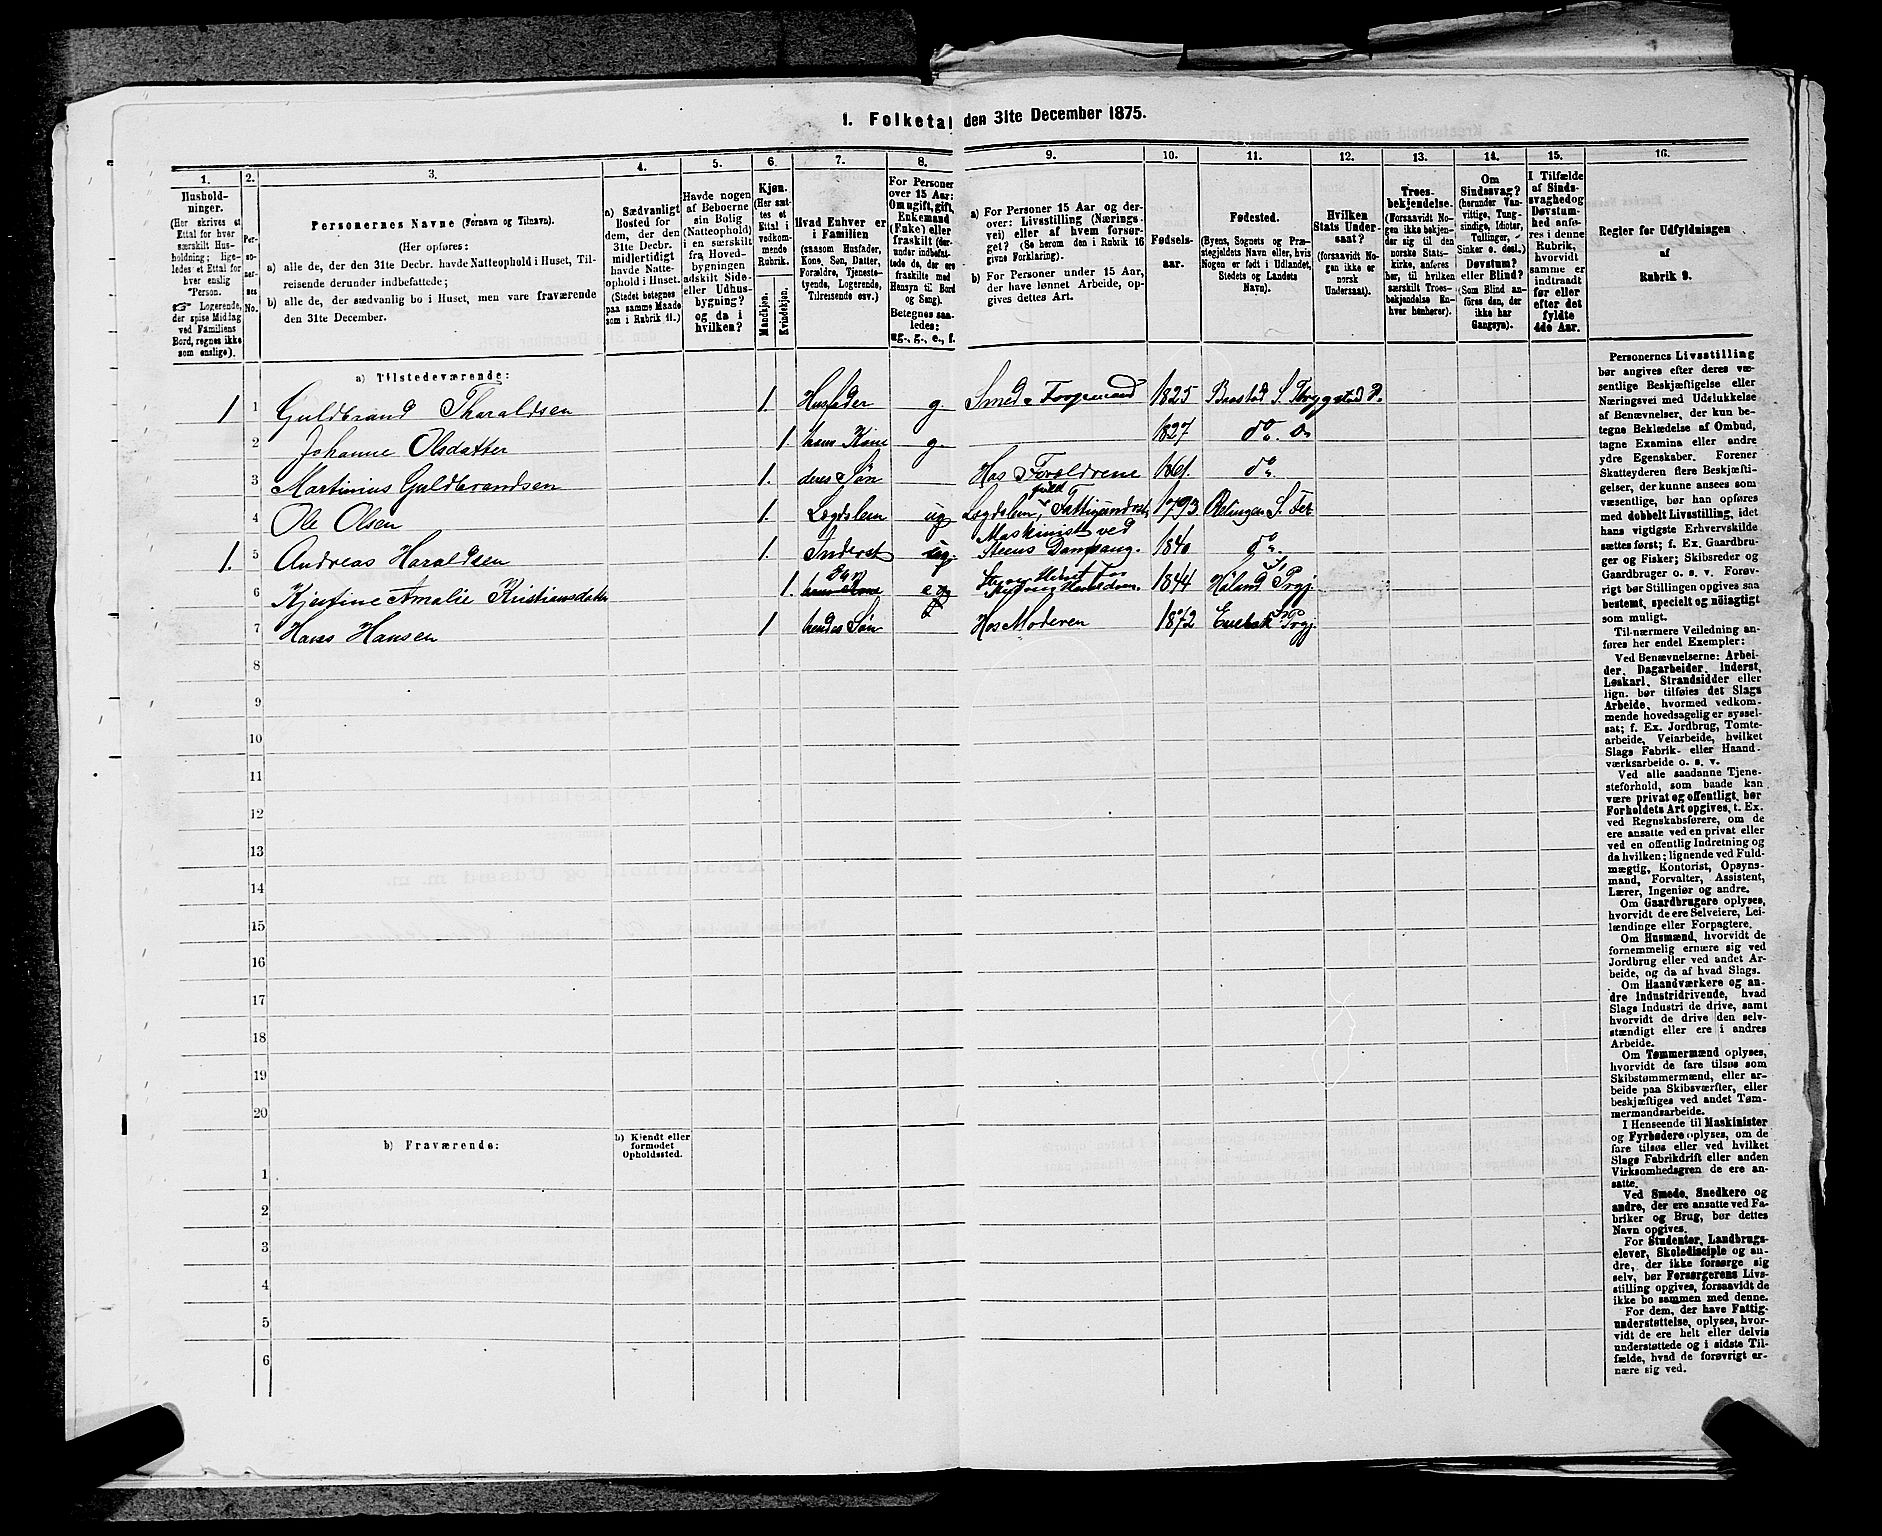 1. Folketal den 31te December 1875.
1. 2. 3. 4. 5. 6. 7. 8. 9. 10. 11. 12. 13. 14. 15. 16.
Husholdninger.
(Her skrives et
Ettal for hver
særskilt Husholdning;
ligeledes et Ettal for
hver enslig
Person.
☞ Logerende,
der spise Middag
ved Familiens
Bord, regnes ikke
som enslige).
Personernes No.
Personernes Navne (Fornavn og Tilnavn).
(Her opføres:
a) alle de, der den 31te Decbr. havde Natteophold i Huset, Tilreisende
derunder indbefattede;
b) alle de, der sædvanlig bo i Huset, men vare fraværende
den 31te December.
a) Sædvanligt
Bosted for
dem, der den
31te Decbr.
midlertidigt
havde Natteophold
i Huset.
(Stedet betegnes
paa samme Maade
som i Rubrik 11.)
Havde nogen
af Beboerne
sin Bolig
(Natteophold)
i en særskilt
fra Hovedbygningen
adskilt Side-
eller Udhusbygning?
og da i
hvilken?
Kjøn.
(Her sættes
et
Ettal i
vedkommende
Rubrik.
Mandkjøn.
Kvindekjøn.
Hvad Enhver er
i Familien
(saasom Husfader,
Kone, Søn, Datter,
Forældre, Tjenestetyende,
Logerende,
Tilreisende osv.)
For Personer
over 15 Aar:
Om ugift, gift,
Enkemand
(Enke) eller
fraskilt (derunder
indbefattede
de, der ere
fraskilte med
Hensyn til Bord
og Seng).
Betegnes saaledes:
ug., g., e., f.
a) For Personer 15 Aar og derover:
Livsstilling (Næringsvei)
eller af hvem forsørget?
(Se herom den i Rubrik 16
givne Forklaring).
b) For Personer under 15 Aar,
der have lønnet Arbeide, opgives
dettes Art.
Fødselsaar.
Fødested.
(Byens, Sognets og Præstegjeldets
Navn, eller, hvis
Nogen er født i Udlandet,
Stedets og Landets
Navn).
Hvilken
Stats Undersaat?
(forsaavidt Nogen
ikke er
norsk
Undersaat).
Troesbekjendelse.
(Forsaavidt Nogen
ikke bekjender
sig til den
norske Statskirke,
anføres
her, til hvilken
særskilt Troesbekjendelse
Enhver
henhører).
Om
Sindssvag?
(herunder Vanvittige,
Tungsindige,
Idioter,
Tullinger,
Sinker o. desl.)
Døvstum?
eller Blind?
(Som Blind anføres
den, der
ikke har
Gangsyn).
I Tilfælde
af Sindssvaghed
og
Døvstumhed
anføres
i denne
Rubrik,
hvorvidt
samme er
indtraadt
før eller
efter det
fyldte
4de Aar.
Regler for Udfyldningen
af
Rubrik 9.
a) Tilstedeværende:
1 1 Guldbrand Tharaldsen 1. Husfader g. Smed 1825 Baastad S. Trygstad P.
2 Johanne Olsdatter 1. hans Kone g. 1827 do. do
3 Martinius Guldbrandsen 1. deres Søn Hos Forældrene 1861. do.
4 Ole Olsen 1. Lægdslem ug Lægdslem, fuld Fattigunderst. 1793
1. 5 Andreas Haraldsen 1. Inderst ug. Maskinist ved Dampsaug. 1840 do.
6 Kjerstine Amalie Kristiansdatter 1. 1844 Høland Prgj.
7 Hans Hansen 1 hendes Søn Hos Moderen 1872 Enebak Prgj.
8
9
10
11
12
13
14
15
16
17
18
19
20
b) Fraværende:
b) Kjendt eller
formodet
Opholdssted.
1
2
3
4
5
6
Personernes Livsstilling
bør angives efter deres væsentlige
Beskjæftigelse eller
Næringsvei med Udelukkelse
af Benævnelser, der kun betegne
Beklædelse af Ombud,
tagne Examina eller andre
ydre Egenskaber. Forener
Skatteyderen flere Beskjæftigelser,
der kunne ansees som
væsentlige, bør han opføres
med dobbelt Livsstilling, idet
hans vigtigste Erhvervskilde
sættes først; f. Ex. Gaardbruger
og Fisker; Skibsreder og
Gaardbruger o. s. v. Forøvrigt
bør Stillingen opgives saa
bestemt, specielt og nøiagtigt
som muligt.
Til nærmere Veiledning anføres
her endel Exempler:
Ved Benævnelserne: Arbeider,
Dagarbeider, Inderst,
Løskarl, Strandsidder eller
lign. bør tilføies det Slags
Arbeide, hvormed vedkommende
hovedsagelig er sysselsat;
f. Ex. Jordbrug, Tomtearbeide,
Veiarbeide, hvilket
Slags Fabrik- eller Haandværksarbeide
o. s. v.
Ved alle saadanne Tjenesteforhold,
som baade kan
være privat og offentligt, bør
Forholdets Art opgives, t. Ex.
ved Regnskabsførere, om de
ere ansatte ved en privat eller
ved en offentlig Indretning og
da hvilken; lignende ved Fuldmægtig,
Kontorist, Opsynsmand,
Forvalter, Assistent,
Lærer, Ingeniør og andre.
Om Gaardbrugere oplyses,
hvorvidt de ere Selveiere, Leilændinge
eller Forpagtere.
Om Husmænd, hvorvidt de
fornemmelig ernære sig ved
Jordbrug eller ved andet Arbeide,
og da af hvad Slags.
Om Haandværkere og andre
Industridrivende, hvad
Slags Industri de drive, samt
hvorvidt de drive den selvstændigt
eller ere i andres
Arbeide.
Om Tømmermænd oplyses,
hvorvidt de fare tilsøs som
Skibstømmermænd, eller arbeide
paa Skibsværfter, eller
beskjæftiges ved andet Tømmermandsarbeide.
I Henseende til Maskinister
og Fyrbødere oplyses, om de
fare tilsøs eller ved hvilket
Slags Fabrikdrift eller anden
Virksomhedsgren de ere ansatte.
Ved Smede, Snedkere og
andre, der ere ansatte ved Fabriker
og Brug, bør dettes
Navn opgives.
For Studenter, Landbrugselever,
Skoledisciple og andre,
der ikke forsørge sig
selv, bør Forsørgerens Livsstilling
opgives, forsaavidt de
ikke bo sammen med denne.
For dem, der have Fattigunderstøttelse,
oplyses, hvorvidt
de ere helt eller delvis
understøttede og i sidste Tilfælde,
hvad de forøvrigt ernære
sig ved.